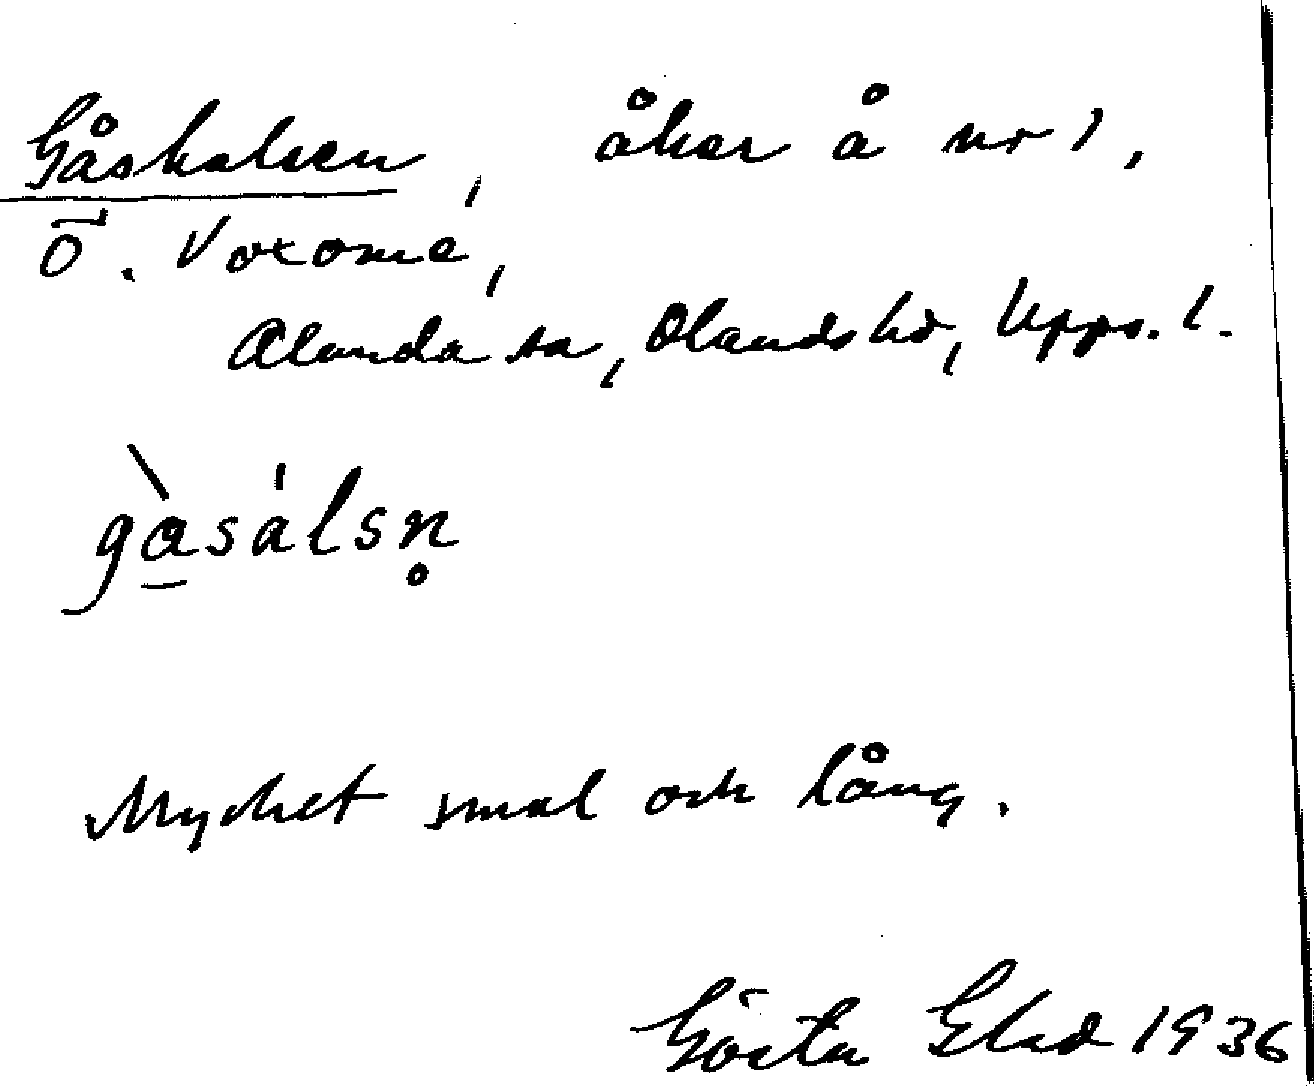 Gåshalsen, åker å nr 1,
Ö. Voxome,
Alunda sn, Olands hd, Upps. l.
gàsálsn̥
Mycket smal och lång.
Gösta Eled 1936